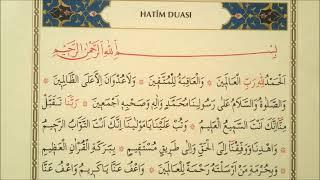 HATİM DUASI
بِسْمِ اللّٰهِ الرَّحْمٰنِ الرَّحِيمِ
اَلْحَمْدُ لِلّٰهِ رَبِّ الْعَالَمِينَ * وَالْعَاقِبَةُ لِلْمُتَّقِينَ * وَلَا عُدْوَانَ اِلَّا عَلَى الظَّالِمِينَ *
وَالصَّلٰوةُ وَالسَّلَامُ عَلٰى رَسُولِنَا مُحَمَّدٍ وَاٰلِهِ وَصَحْبِهِ اَجْمَعِينَ * رَبَّنَا تَقَبَّلْ
مِنَّا اِنَّكَ اَنْتَ السَّمِيعُ الْعَلِيمُ * وَتُبْ عَلَيْنَا يَا مَوْلٰينَا اِنَّكَ اَنْتَ التَّوَّابُ الرَّحِيمُ
* وَاهْدِنَا وَوَفِّقْنَا اِلَى الْحَقِّ وَاِلٰى طَرِيقٍ مُسْتَقِيمٍ * بِبَرَكَةِ الْقُرْاٰنِ الْعَظِيمِ
* وَبِحُرْمَةِ مَنْ اَرْسَلْتَهُ رَحْمَةً لِلْعَالَمِينَ * وَاعْفُ عَنَّا يَا كَرِيمُ * وَاعْفُ عَنَّا